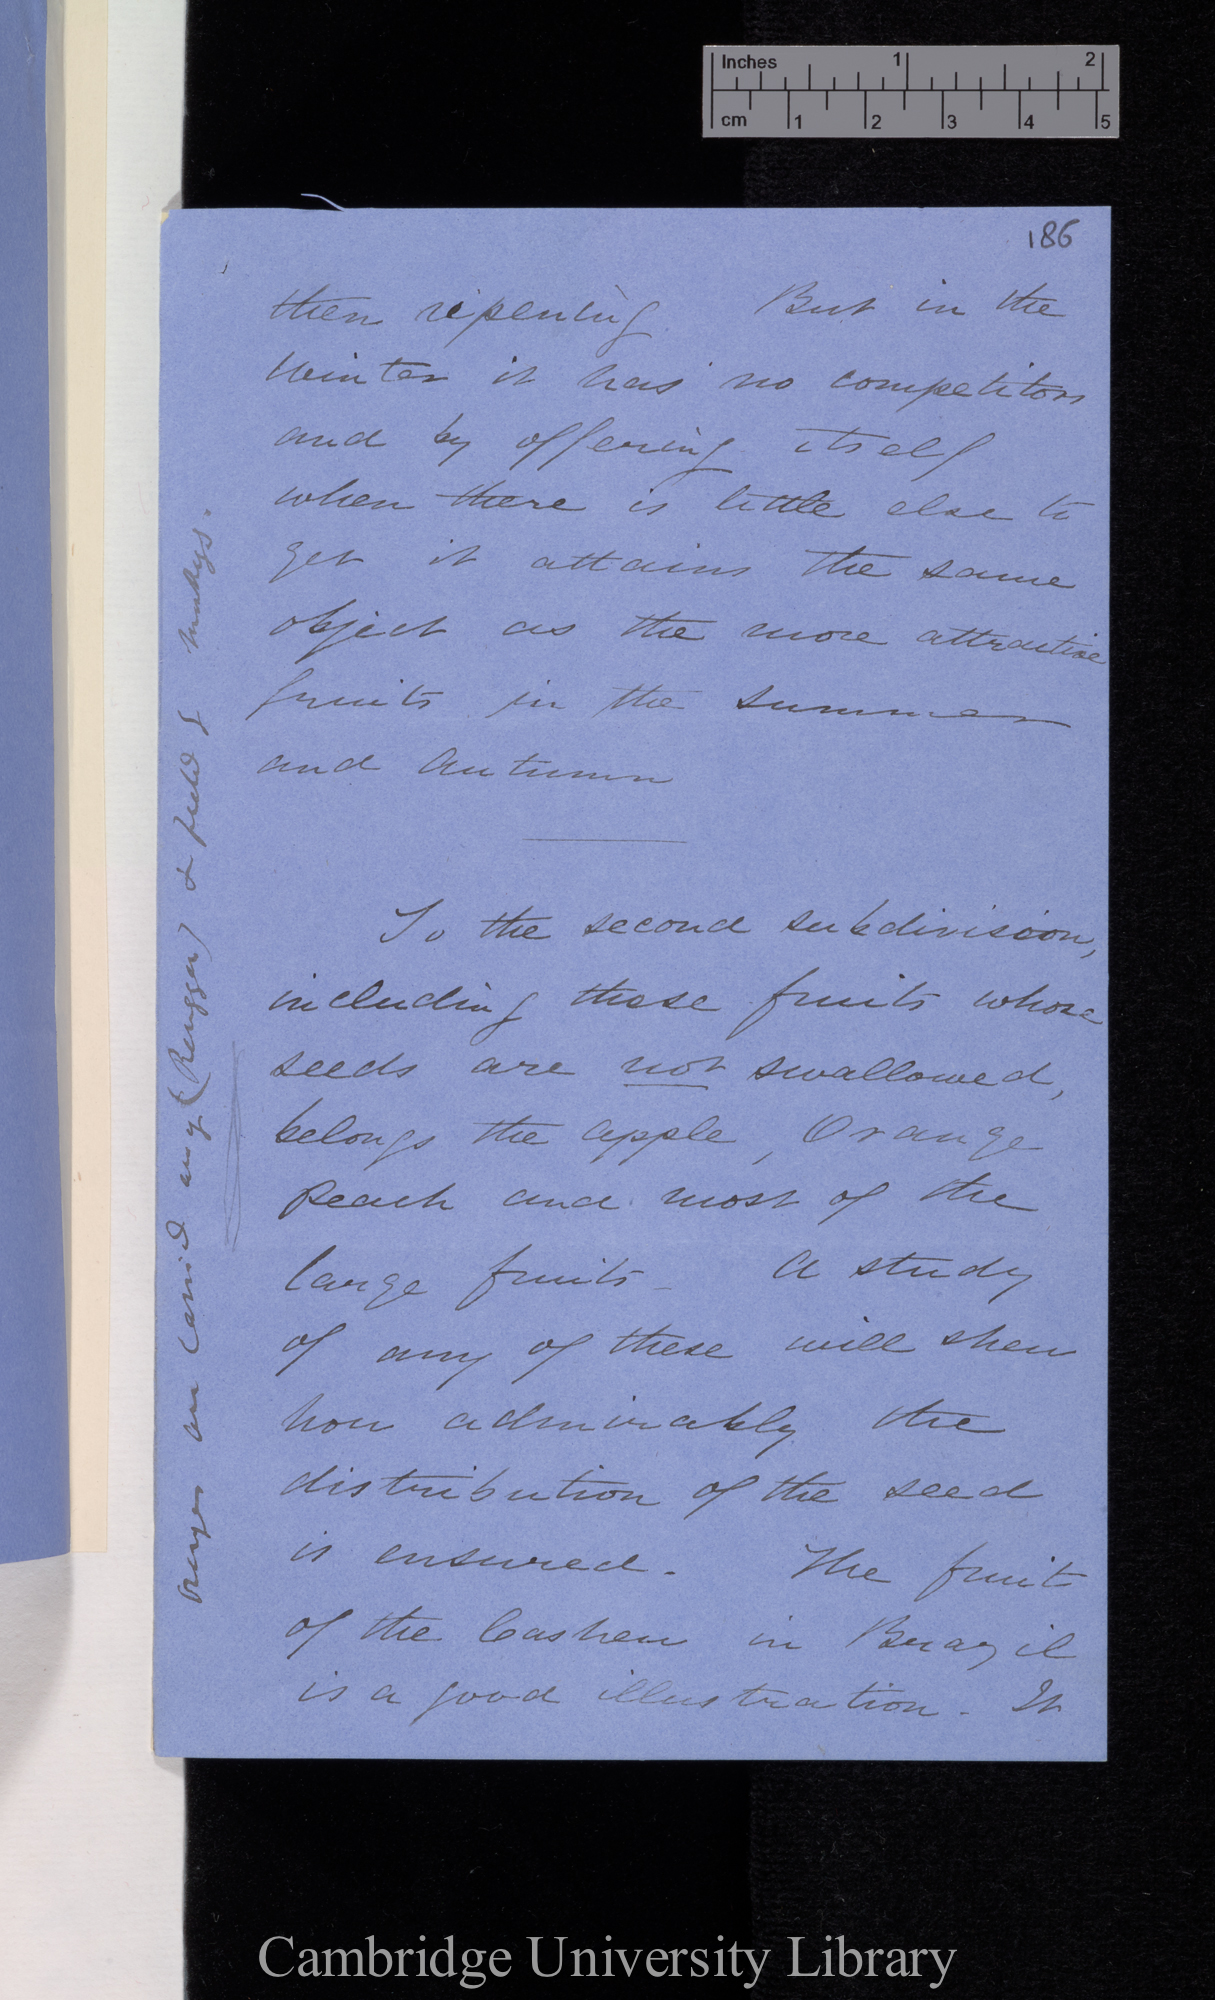 Inches 1 2
cm 1 2 3 4 5
186
then ripening But in the
Winter it has no competitors
and by offering itself
when there is little else to
get it attains the same
object as the more attractive
fruits in the summer
and Autumn
To the second subdivision,
including those fruits whose
seeds are not swallowed,
belongs the apple, Orange
Peach and most of the
large fruits - A study
of any of these will shew
how admirably the
distribution of the seed
is ensured. The fruit
of the Cashew in Brazil
is a good illustration. It
Oranges are carried away (Rengger) & fruit of monkeys.
Cambridge University Library